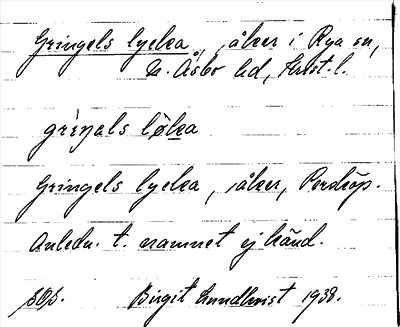 Gringels lycka, åker i Rya sn,
N. Åsbo hd, Krist. l.
griŋals løka
Gringels lycka, åker, Perstorp.
Anledn. t. namnet ej känd.
Birgit Lundkvist 1938.